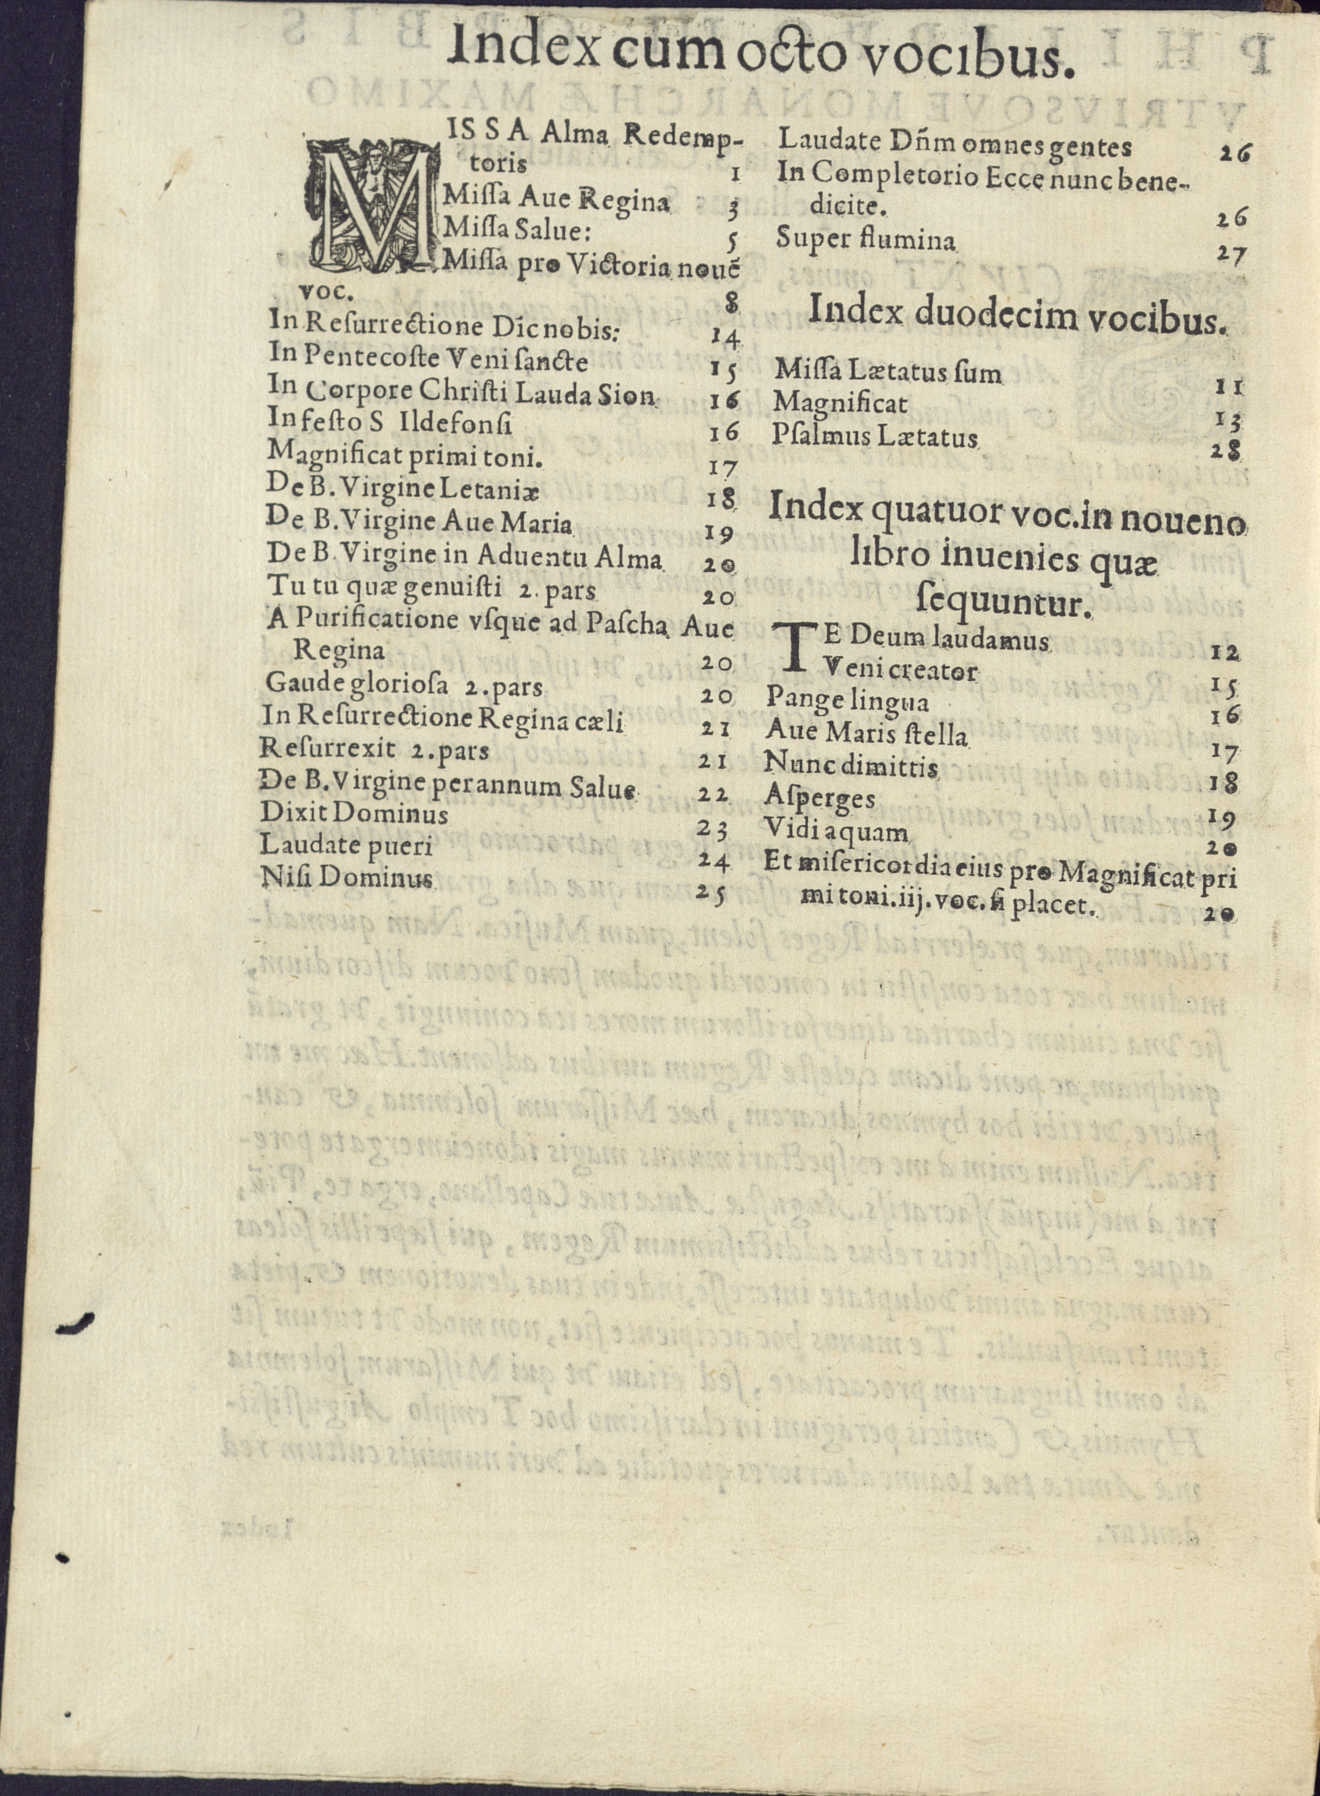 Index cum octo vocibus.
MISSA Alma Redemp-
toris 1
Miſſa Aue Regina 3
Miſſa Salue: 5
Miſſa pro Victoria nouẽ
voc. 8
In Reſurrectione Dic nobis: 14
In Pentecoſte Veni ſancte 15
In Corpore Chriſti Lauda Sion 16
In feſto S Ildefonſi 16
Magnificat primi toni. 17
De B. Virgine Letaniæ 18
De B. Virgine Aue Maria 19
De B. Virgine in Aduentu Alma 20
Tu tu quæ genuiſti 2. pars 20
A Purificatione vſque ad Paſcha Aue
Regina 20
Gaude glorioſa 2. pars 20
In Reſurrectione Regina cæli 21
Reſurrexit 2. pars 21
De B. Virgine per annum Salue 22
Dixit Dominus 23
Laudate pueri 24
Niſi Dominus 25
Laudate Dñm omnes gentes 26
In Completorio Ecce nunc bene-
dicite. 26
Super flumina 27
Index duodecim vocibus.
Miſſa Lætatus ſum 11
Magnificat 13
Pſalmus Lætatus 28
Index quatuor voc. in noueno
libro inuenies quæ
ſequuntur.
TE Deum laudamus 12
Veni creator 15
Pange lingua 16
Aue Maris ſtella 17
Nunc dimittis 18
Aſperges 19
Vidi aquam 20
Et miſericordia eius pro Magnificat pri
mi toni. iij. voc. ſi placet. 20